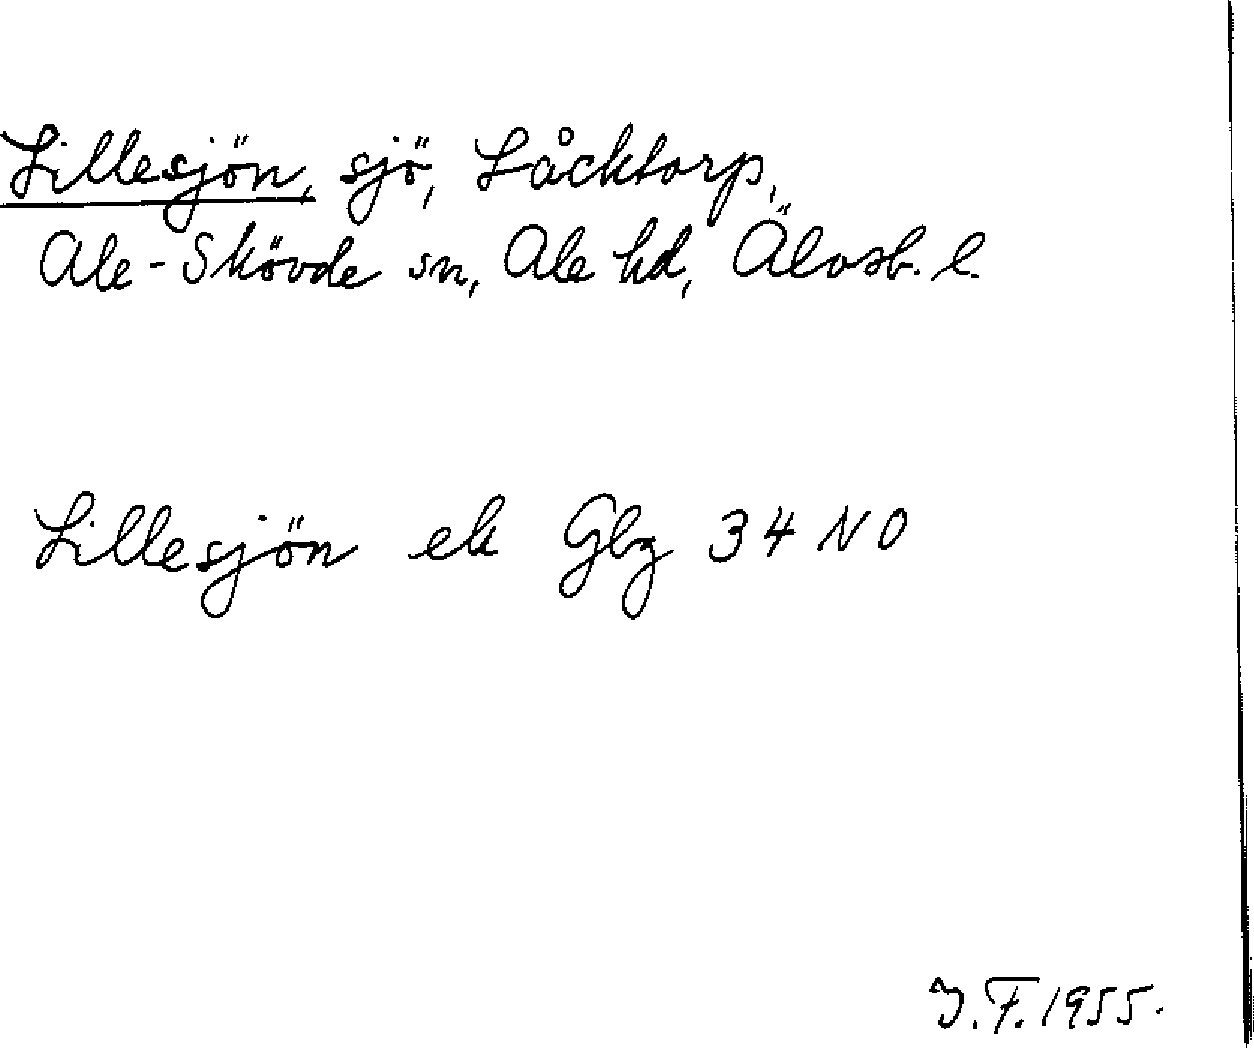 Lillesjön, sjö, Låcktorp,
Ale-Skövde sn, Ale hd, Älvsb. l.
Lillesjön ek Gbg 34 NO
I.F. 1955.